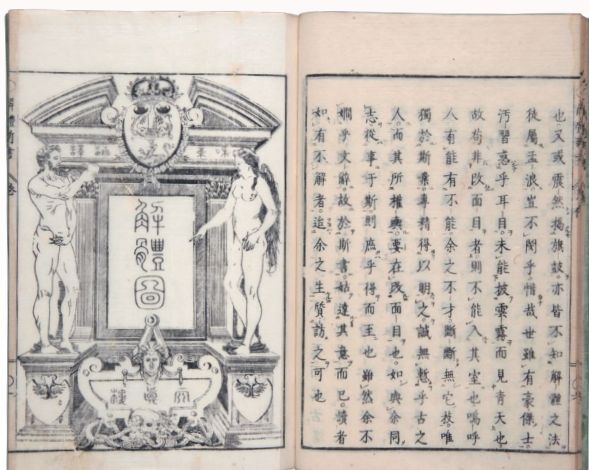 也又或震然揚旗鼓亦皆不知解體之法
徒屬孟浪豈不閔乎惜哉世雖有豪傑士
汚習惑乎耳目未能披雲霧而見青天也
故苟非改面目者則不能入其室也嗚呼
人有能有不能余之不才斷斷無它藝唯
獨於斯業專精得以明之誠無慙乎古之
人而其所權輿要在改面目也如與余同
志從事于斯則庶乎得而至也雖然余不
嫺乎文辭故於斯書姑達其意而已讀者
如有不解者迨余之生質訪之可也
解體圖
天眞樓